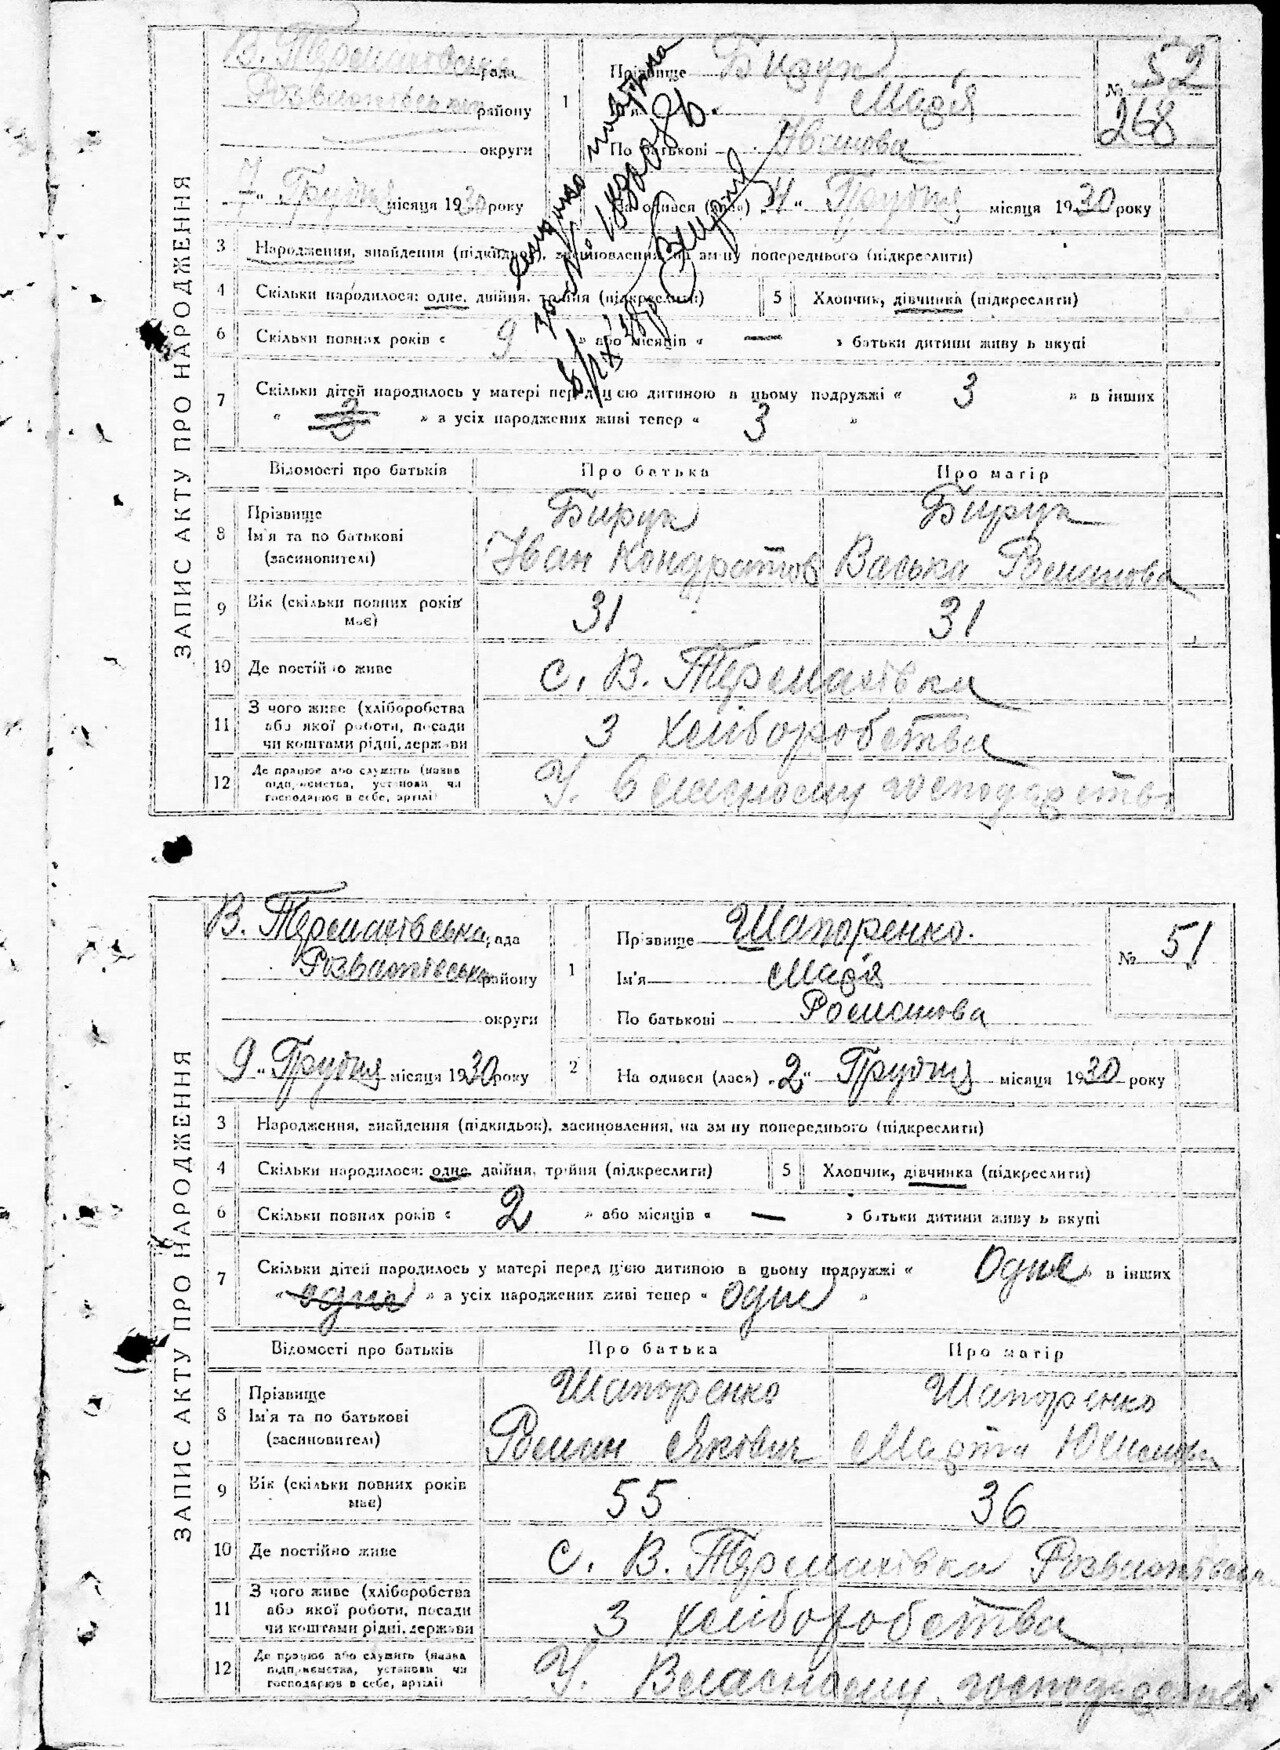 ЗАПИС АКТУ ПРО НАРОДЖЕННЯ
В. Термахівська рада
Розважівський району
округи
7 " Грудня місяця 1930 року
1
Прізвище Бирук
Ім'я Марія
По батькові Іванова
№ 52
268
Народився (лась) „4" Грудня місяця 1930 року
3 Народження, знайдення (підкидьок), засиновлення, на зміну попереднього (підкреслити)
4 Скільки народилося: одне, двійня, трійня (підкреслити)
5 Хлопчик, дівчинка (підкреслити)
6 Скільки повних років « 9 » або місяців « — » батьки дитини живуть вкупі
7 Скільки дітей народилось у матері перед цією дитиною в цьому подружжі « 3 » в інших
« 3 » а усіх народжених живі тепер « 3 »
Відомості про батьків Про батька Про матір
8 Прізвище Бирук Бирук
Ім'я та по батькові Іван Кондратов Романова
(засиновителі)
9 Вік (скільки повних років має) 31 31
10 Де постійно живе с. В. Термахівка
11 З чого живе (хліборобства або якої роботи, посади чи коштами рідні, держави З хліборобства
12 Де працює або служить (назва підприємства, установи чи господарює в себе, артілі) У власному господарстві
ЗАПИС АКТУ ПРО НАРОДЖЕННЯ
В. Термахівська рада
Розважівський району
округи
9 " Грудня місяця 1930 року
1
Прізвище Шапоренко.
Ім'я Марія
По батькові Романова
№ 51
2 Народився (лася) „2" Грудня місяця 1930 року
3 Народження, знайдення (підкидьок), засиновлення, на зміну попереднього (підкреслити)
4 Скільки народилося: одне, двійня, трійня (підкреслити)
5 Хлопчик, дівчинка (підкреслити)
6 Скільки повних років « 2 » або місяців « — » батьки дитини живуть вкупі
7 Скільки дітей народилось у матері перед цією дитиною в цьому подружжі « Одне » в інших
« одне » а усіх народжених живі тепер « Одне »
Відомості про батьків Про батька Про матір
8 Прізвище Шапоренко Шапоренко
Ім'я та по батькові Роман Якович Марта
(засиновителі)
9 Вік (скільки повних років має) 55 36
10 Де постійно живе с. В. Термахівка
11 З чого живе (хліборобства або якої роботи, посади чи коштами рідні, держави З хліборобства
12 Де працює або служить (назва підприємства, установи чи господарює в себе, артілі) У Власному господарстві